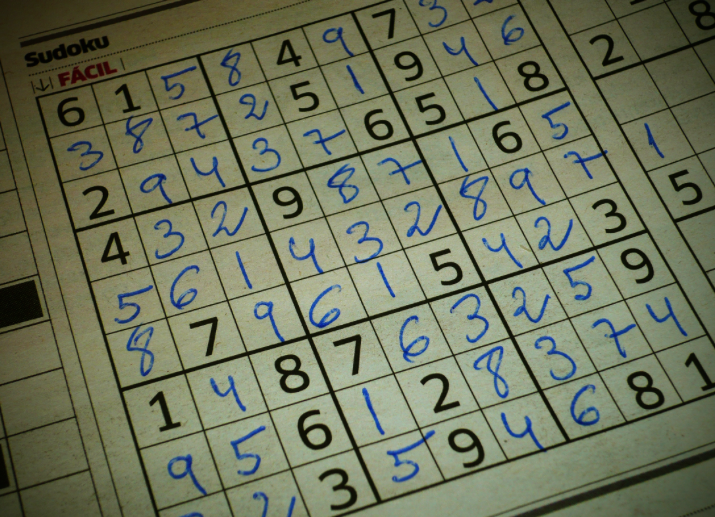 Sudoku
FÁCIL
6 1 5 8 4 9 7 3
3 8 7 2 5 1 9 4 6
2 9 4 3 7 6 5 1 8
4 3 2 9 8 7 1 6 5
5 6 1 4 3 2 8 9 7
8 7 9 6 1 5 4 2 3
1 4 8 7 6 3 2 5 9
9 5 6 1 2 8 3 7 4
2 3 5 9 4 6 8 1
8
2
1
5